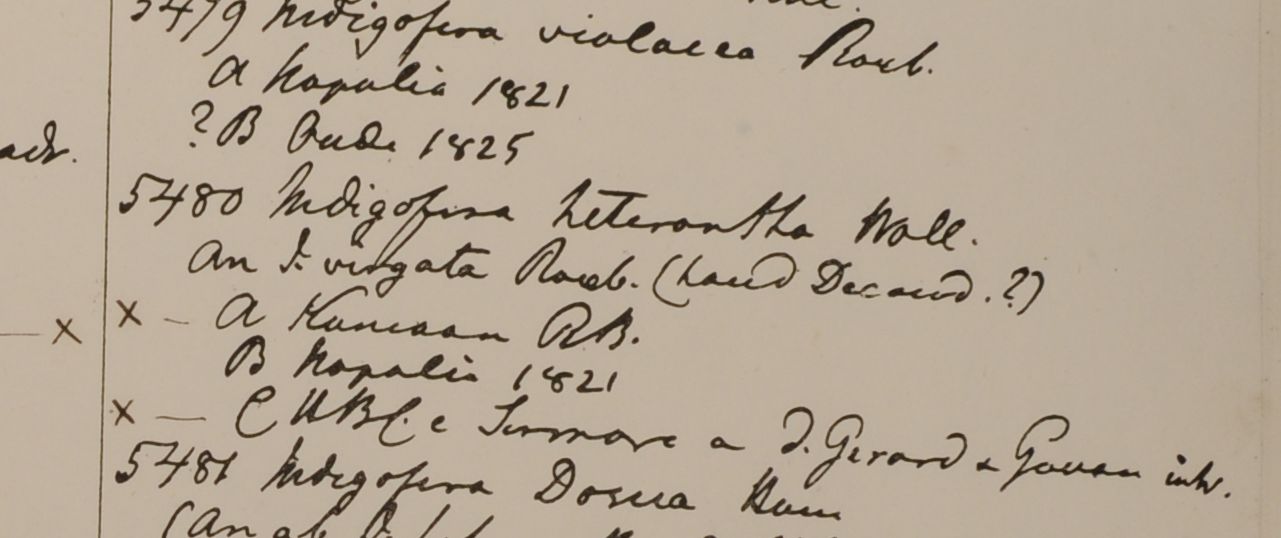 5479 Indigofera violacea Roxb.
A Napalia 1821
? B Oude 1825
adr.
5480 Indigofera heterantha Wall.
An I. virgata Roxb. (haud Decand.?)
x x — A Kamaon R.B.
B Napalia 1821
x — C HBC. e Sirmore a D. Gerard & Govan intr.
5481 Indigofera Dosua Ham
(An ab